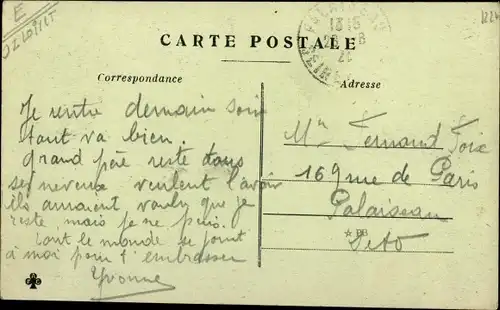 E
CARTE POSTALE
13 15
Correspondance
Adresse
Je rentre demain soir
tout va bien.
Grand père reste tous
ses neveux veulent l'avoir
ils auraient voulu que je
reste mais je ne puis.
tout le monde se joint
à moi pour t'embrasser
Yvonne
Mr Fernand Foix
169 rue de Paris
Palaiseau
☆ BB